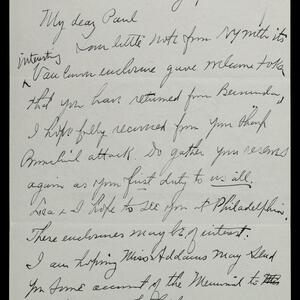 My dear Paul
Your little note from NY with its
interesting
enclosure gave welcome token
that you have returned from Bermuda
I hope fully recovered from your sharp
Bronchial attack. Do gather your reserves
again as your first duty to us all.
& I hope to see you at Philadelphia.
These enclosures may be of interest.
I am hoping Miss Addams may send
you some account of the Memorial to